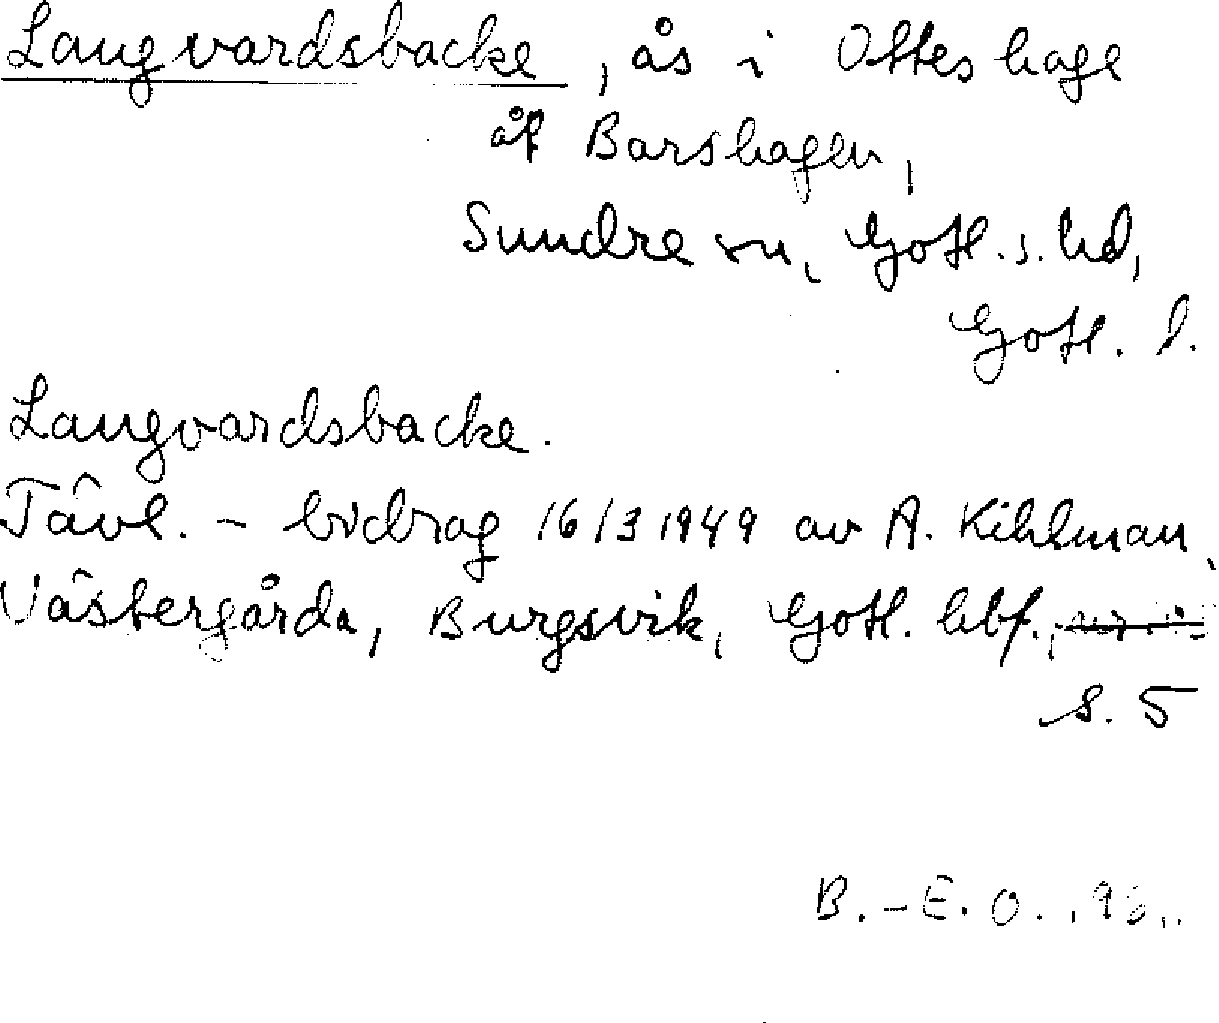 Langvardsbacke, ås i Ottes hage
åt Barshagen,
Sundre sn, Gotl. s. hd,
Gotl. l.
Langvardsbacke.
Tävl. - bidrag 16/3 1949 av A. Kihlman,
Västergårda, Burgsvik, Gotl. hbf.,
s. 5
B.-E. O.